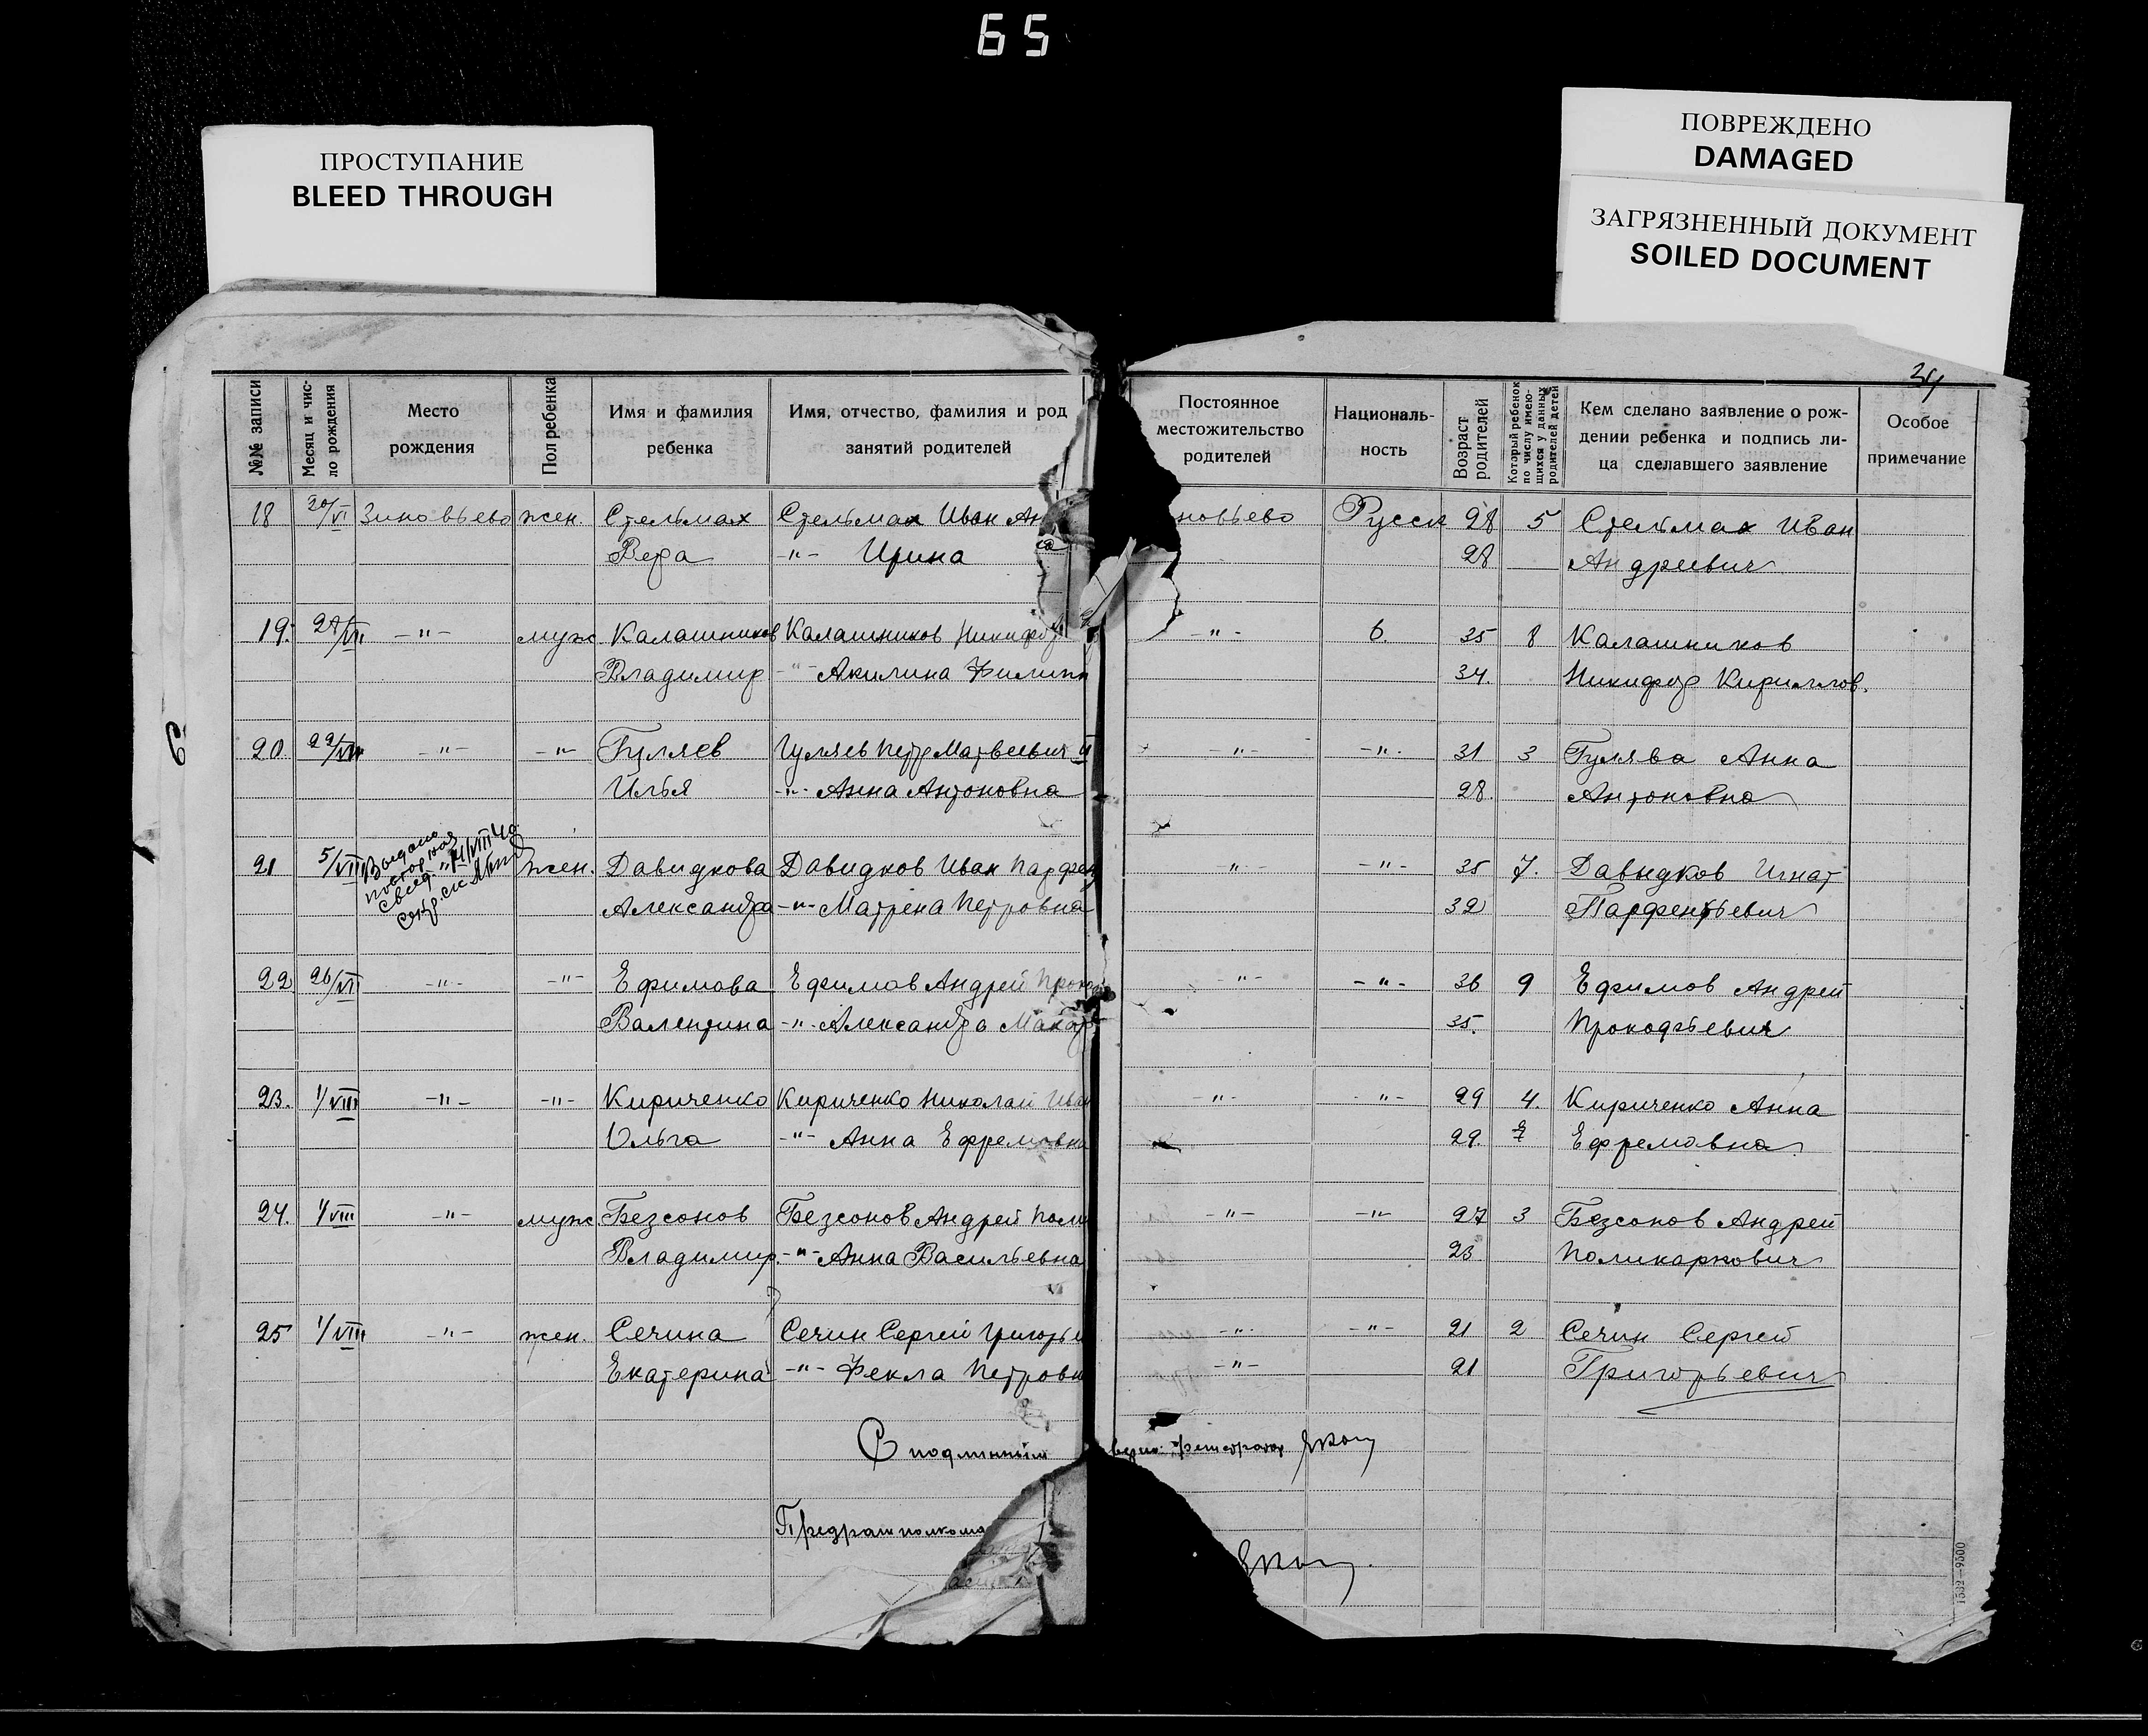 65
ПРОСТУПАНИЕ
BLEED THROUGH
ПОВРЕЖДЕНО
DAMAGED
ЗАГРЯЗНЕННЫЙ ДОКУМЕНТ
SOILED DOCUMENT
34
№№ записи
Месяц и чис-
ло рождения
Место
рождения
Пол ребенка
Имя и фамилия
ребенка
Имя, отчество, фамилия и род
занятий родителей
Постоянное
местожительство
родителей
Националь-
ность
Возраст
родителей
Который ребенок
по числу имею-
щихся у данных
родителей детей
Кем сделано заявление о рож-
дении ребенка и подпись ли-
ца сделавшего заявление
Особое
примечание
18 20/VI Зиновьево жен. Стельмах Стельмах Иван Ан новьево Русск 28 5 Стельмах Иван
Вера -"- Ирина 28 Андреевич
19. 27/VII -"- муж Калашников Калашников Никифор -"- 35 8 Калашников
Владимир -"- Акилина Филипп 34. Никифор Кириллов.
6
20. -"- -"- Гуляев Гуляев Петр Матвеевич -"- -"- 31 3 Гулява Анна
Илья -"- Анна Антоновна 28. Антоновна
21 5/VII Выдано
жен. Давидкова Давидков Иван Парфен -"- -"- 35 7. Давыдков Игнат
Александра -"- Матрена Петровна 32 Парфентьевич
22 26/VII -"- -"- Ефимова Ефимов Андрей Прок -"- -"- 36 9 Ефимов Андрей
Валентина -"- Александра Макар 35. Прокофьевич
23. 1/VIII -"- -"- Кириченко Кириченко Николай Иван -"- -"- 29 4. Кириченко Анна
Ольга -"- Анна Ефремовна 29. Ефремовна
24. 1/VIII -"- муж Безсонов Безсонов Андрей Поли -"- -"- 27 3 Безсонов Андрей
Владимир. -"- Анна Васильевна 23 Поликарпович
25 1/VIII -"- жен. Сечина Сечин Сергей Григорьи -"- -"- 21 2 Сечин Сергей
Екатерина -"- Фекла Петровн -"- 21 Григорьевич
С подлинным верно
1532—9500